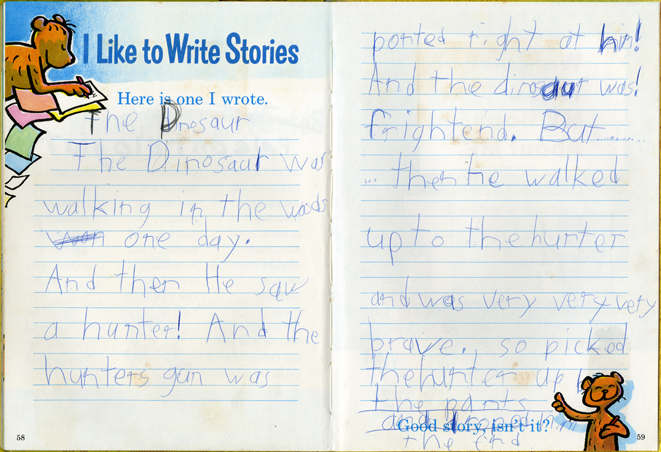 I Like to Write Stories
Here is one I wrote.
The Dinosaur
The Dinosaur was
walking in the woods
one day.
And then He saw
a hunter! And the
hunters gun was
58
ponted right at him!
And the dinosaur was!
frightend. But......
... then he walked
up to the hunter
and was very very very
brave. so picked
the hunter up by
the pants
and droped him
Good story, isn't it?
the end
59